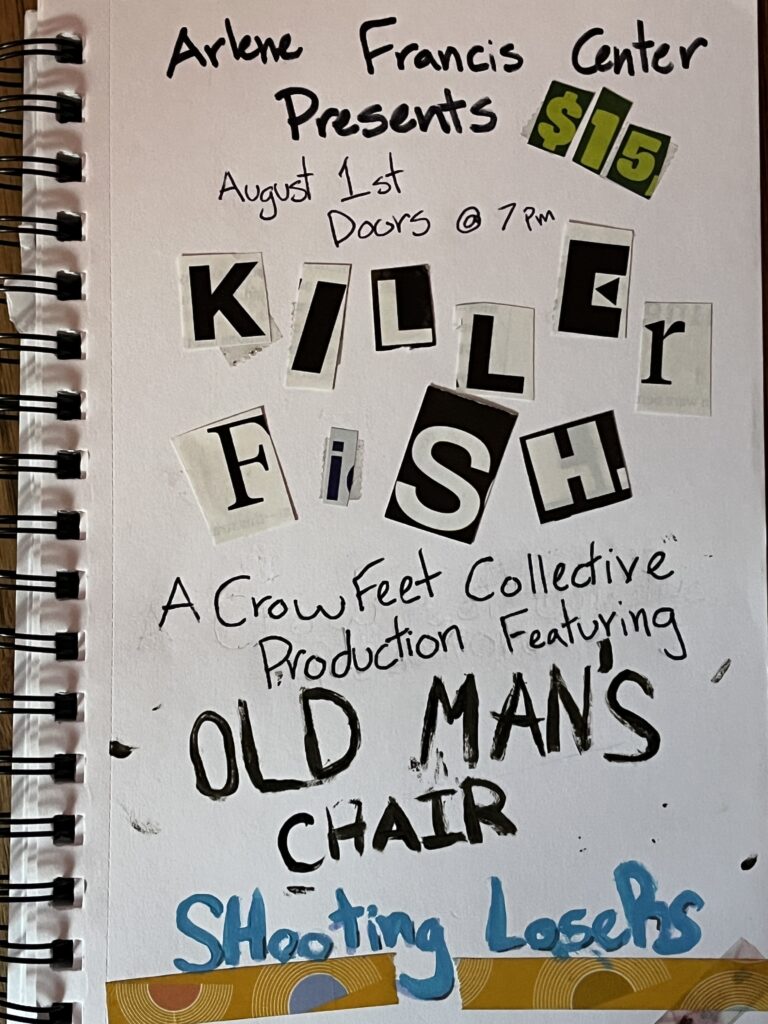 Arlene Francis Center
Presents $15
August 1st
Doors @ 7pm
KILLEr
FiSH
A CrowFeet Collective
Production Featuring
OLD MAN'S
CHAIR
SHooting LoseRs